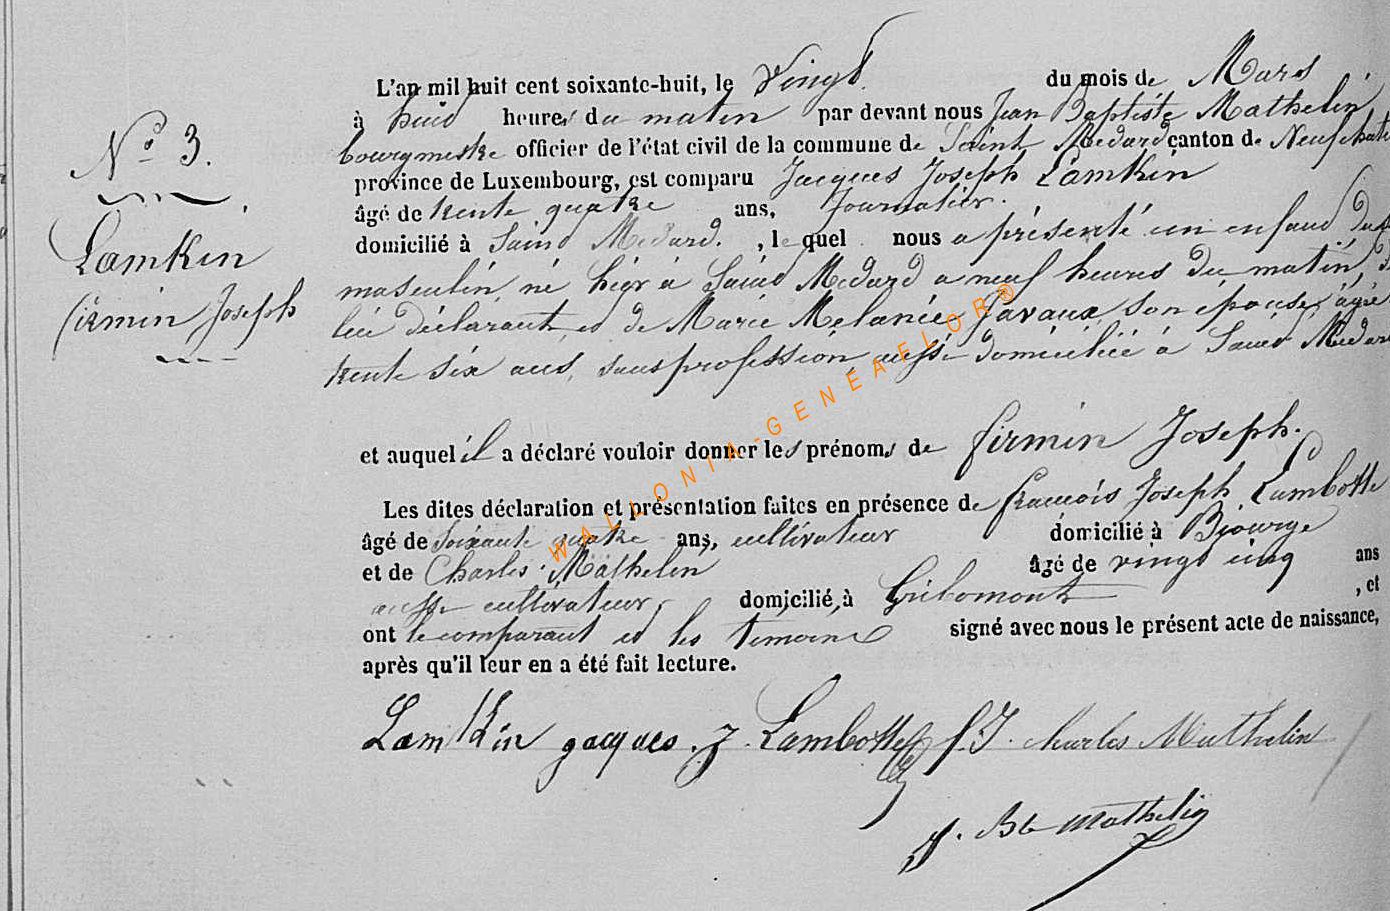 N° 3.
Lamkin
firmin Joseph
L'an mil huit cent soixante-huit, le vingt du mois de Mars
à huit heures du matin par devant nous Jean Baptiste Mathelin
bourgmestre officier de l'état civil de la commune de Saint Médard canton de Neufchat
province de Luxembourg, est comparu Jacques Joseph Lamkin
âgé de trente quatre ans, Journalier.
domicilié à Saint Médard. , lequel nous a présenté un enfant du
masculin, né hier à Saint Médard a neuf heures du matin,
lui déclarant, et de Marie Mélanie Javaux, son épouse, âgée
trente six ans, sans profession, aussi domiciliée à Saint Médard
et auquel il a déclaré vouloir donner les prénoms de firmin Joseph.
Les dites déclaration et présentation faites en présence de françois Joseph Lambotte
âgé de soixante quatre ans, cultivateur domicilié à Biourge
et de Charles Mathelin âgé de vingt cinq ans
aussi cultivateur, domicilié à Gribomont , et
ont le comparant et les témoins signé avec nous le présent acte de naissance,
après qu'il leur en a été fait lecture.
Lamkin jacques. J. Lambotte f. J. charles Mathelin
J. Bte Mathelin
WALLONIA-GENEAFLOR®